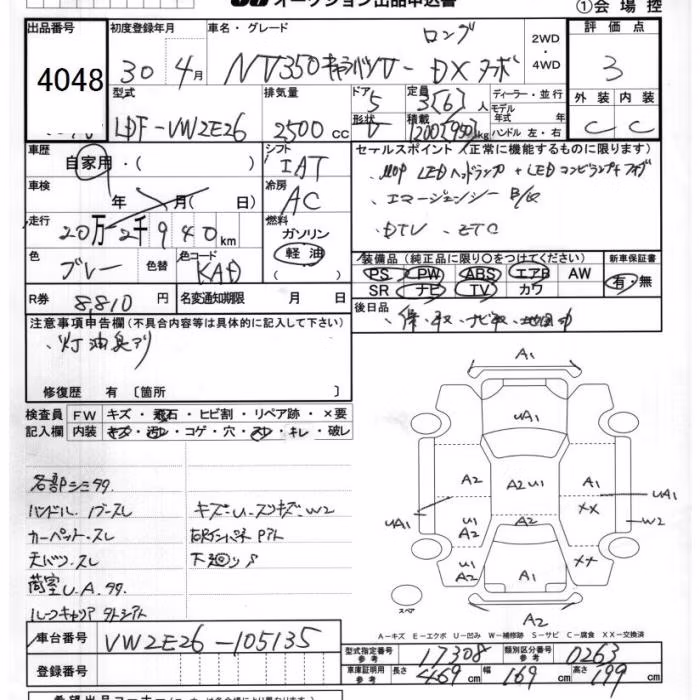 オークション出品申込書
①会場控
出品番号
4048
初度登録年月
30年4月
車名・グレード
ロング
NV350キャラバンV-DXターボ
2WD
・4WD
評価点
3
外装 内装
C C
型式
LDF-VW2E26
排気量
2500cc
ドア
5
形状
V
定員
3[6]人
積載
1200[950]kg
ディーラー・並行
モデル 年式 年
ハンドル 左・右
車歴
自家用・( )
シフト
IAT
冷房
AC
車検
年 月( 日)
走行
20万2千940km
燃料
ガソリン
軽油
( )
色
グレー
色替
色コード
KAD
R券
8,810円
名変通知期限 月 日
セールスポイント(正常に機能するものに限ります)
・MOP LEDヘッドランプ+LEDコンビランプ+フォグ
・エマージェンシーB/G
・DTV・ETC
装備品(純正品に限り○をつけてください)
PS PW ABS エアB AW
SR ナビ TV カワ
新車保証書
有・無
後日品
・保・取・ナビ取・
注意事項申告欄(不具合内容等は具体的に記入して下さい)
・灯油臭アリ
修復歴 有 〔箇所 〕
検査員
記入欄
FW キズ・飛石・ヒビ割・リペア跡・×要
内装 キズ・汚レ・コゲ・穴・スレ・キレ・破レ
各部シミヨゴレ
ハンドル・ノブスレ
カーペットスレ
天バリスレ
荷室U.A.
ルーフキャリア
キズ・U・スリキズ・W2
下廻りサ
A1
UA1
A2
A2U1
A1
XX
UA1
W2
UA1
U1
A2
A2
U1
A2
XX
A1
A2
スペア
A-キズ E-エクボ U-凹み W-補修跡 S-サビ C-腐食 XX-交換済
車台番号
VW2E26-105135
登録番号
型式指定番号
参考
17308
類別区分番号
参考
0263
車庫証明用
参考
長さ 469cm 幅 169cm 高さ 199cm